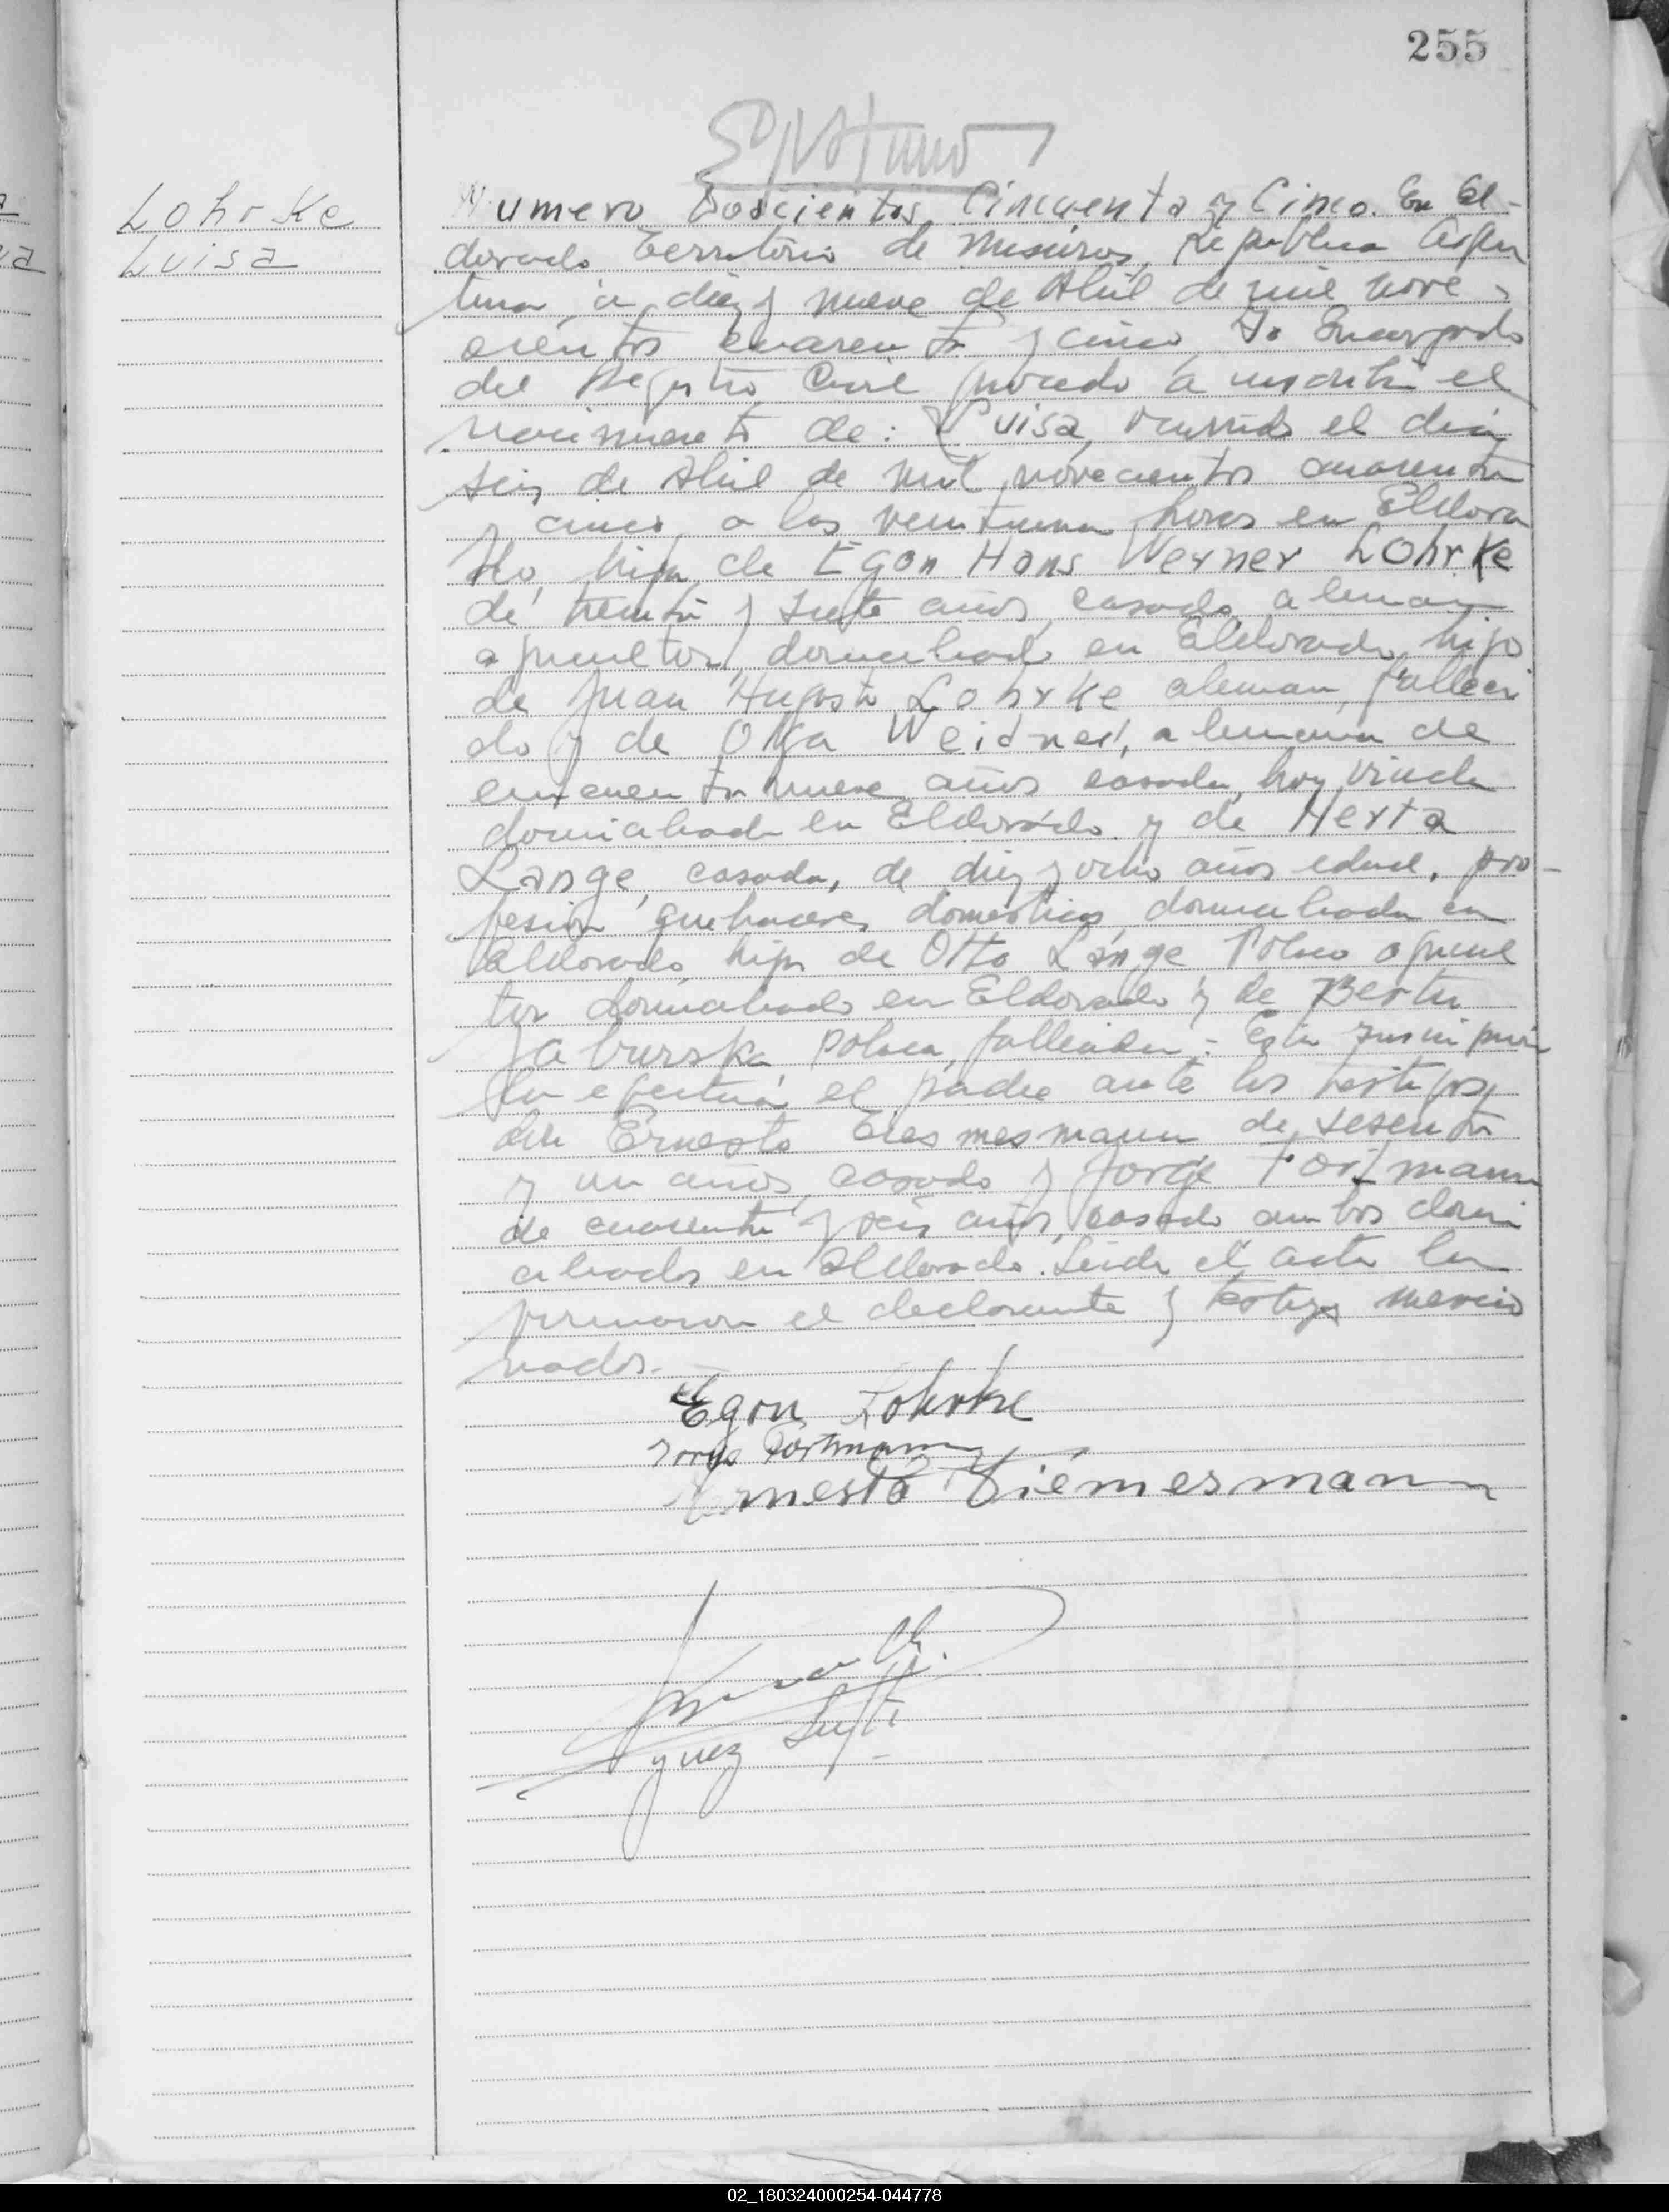 255
Lohrke
Luisa
Numero Doscientos Cincuenta y Cinco. En El-
dorado Territorio de Misiones, Republica Argen
tina a diez y nueve de Abril de mil nove-
cientos cuarenta y cinco, Yo Encargado
del Registro Civil procedo a inscribir el
nacimiento de: Luisa, ocurrido el dia
seis de Abril de mil novecientos cuarenta
y cinco a las veintiuna horas en Eldora
do, hija de Egon Hans Werner Lohrke
de treinta y siete años, casado, aleman
agricultor, domiciliado en Eldorado, hijo
de Juan Augusto Lohrke aleman, falleci
do y de Olga Weidner, alemana de
cincuenta nueve años casada, hoy viuda
domiciliada en Eldorado y de Herta
Lange, casada, de diez y ocho años edad, pro-
fesion quehaceres domesticos, domiciliada en
Eldorado, hija de Otto Lange Polaco agricul
tor domiciliado en Eldorado y de Berta
polaca, fallecida.- Esta
la efectua el padre ante los testigos
don Ernesto de sesenta
y un años, casado y Jorge Fortmann
de cuarenta y seis años, casado ambos domi
ciliados en Eldorado. Leida el acta la
firmaron el declarante y testigos mencio
nados.-
Egon Lohrke
Jorge Fortmann
Ernesto Diemesmann